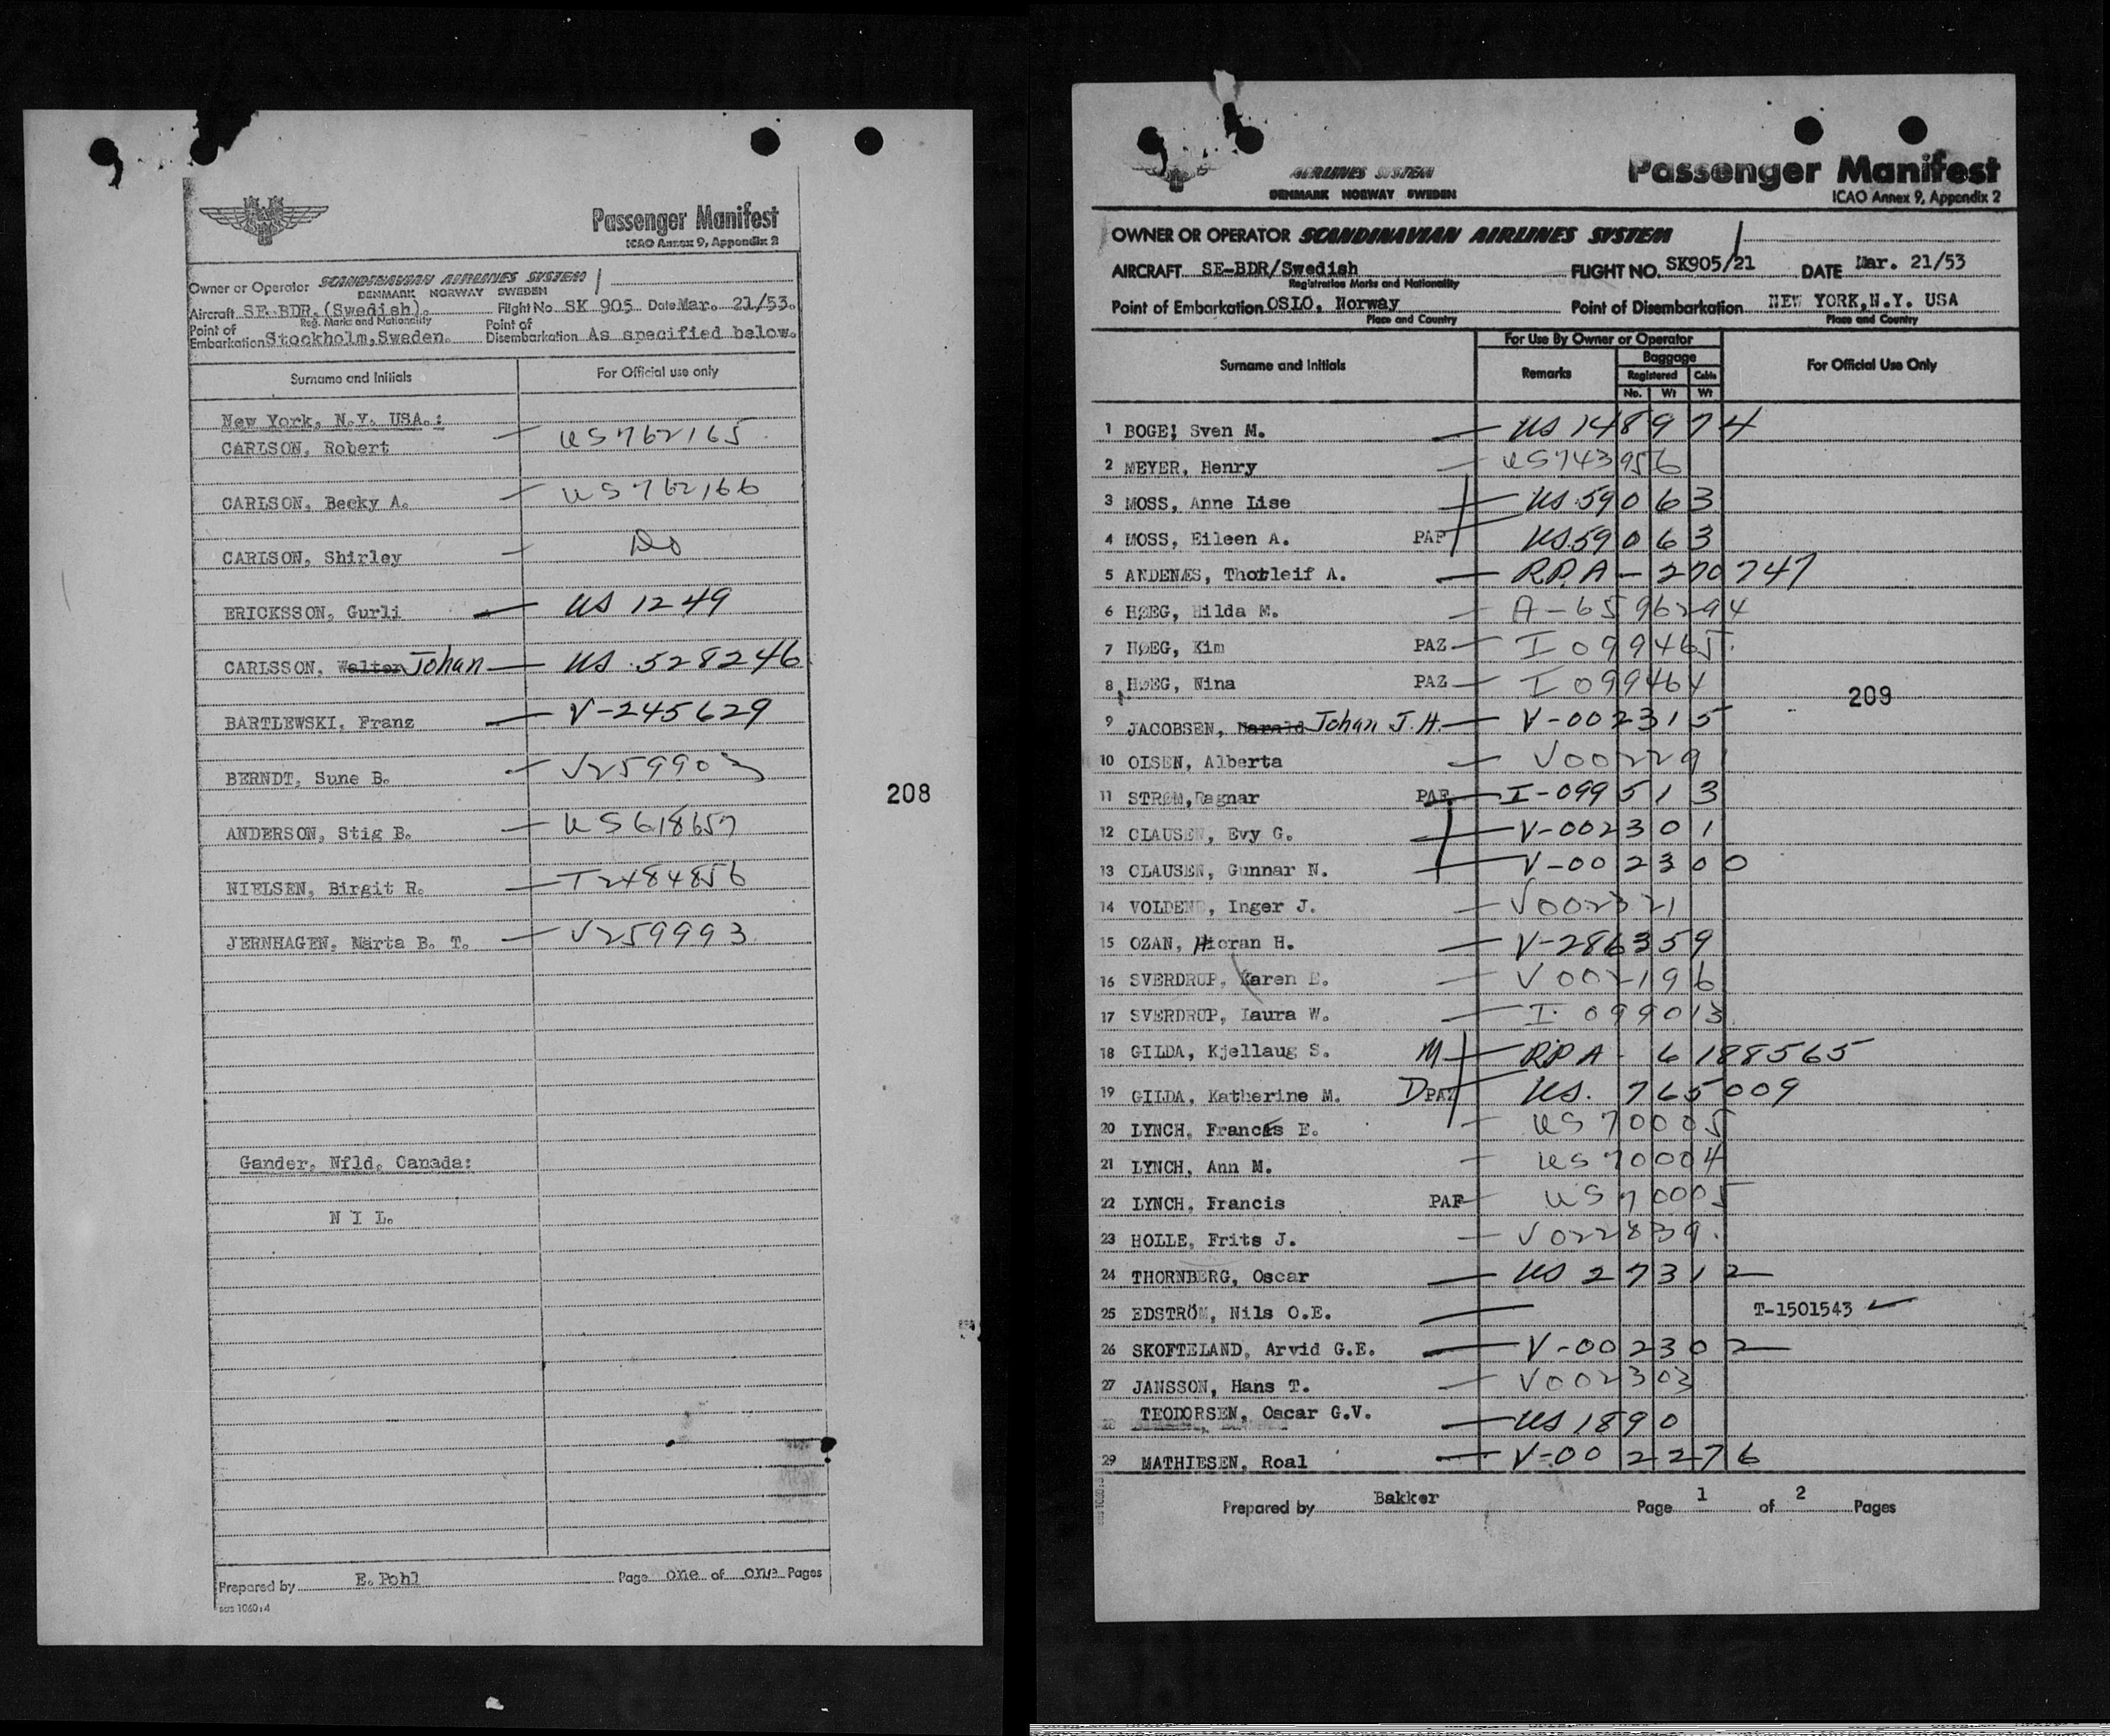 Passenger Manifest
ICAO Annex 9, Appendix 2
Owner or Operator SCANDINAVIAN AIRLINES SYSTEM
DENMARK NORWAY SWEDEN
Aircraft SE-BDR.(Swedish). Flight No. SK 905 Date Mar. 21/53.
Reg. Marks and Nationality
Point of Embarkation Stockholm,Sweden. Point of Disembarkation As specified below.
Surname and Initials For Official use only
New York, N.Y. USA.:
CARLSON, Robert — US762165
CARLSON, Becky A. — US762166
CARLSON, Shirley — Do
ERICKSSON, Gurli — US 1249
CARLSSON, Walter Johan — US 528246
BARTLEWSKI, Franz — V-245629
BERNDT, Sune B. — V259903
ANDERSON, Stig B. — US618657
NIELSEN, Birgit R. — T2484856
JERNHAGEN, Märta B. T. — V259993
208
Gander, Nfld, Canada:
N I L.
Prepared by E. Pohl Page one of one Pages
SAS 1060:4
AIRLINES SYSTEM
DENMARK NORWAY SWEDEN
Passenger Manifest
ICAO Annex 9, Appendix 2
OWNER OR OPERATOR SCANDINAVIAN AIRLINES SYSTEM
AIRCRAFT SE-BDR/Swedish FLIGHT NO. SK905/21 DATE Mar. 21/53
Registration Marks and Nationality
Point of Embarkation OSLO, Norway Point of Disembarkation NEW YORK,N.Y. USA
Place and Country Place and Country
For Use By Owner or Operator
Surname and Initials Remarks Baggage For Official Use Only
Registered Cabin
No. Wt Wt
1 BOGE, Sven M. — US 148974
2 MEYER, Henry — US743956
3 MOSS, Anne Lise — US.59063
4 MOSS, Eileen A. PAF US.59063
5 ANDENÆS, Thorleif A. — R.P.A - 270747
6 HØEG, Hilda M. — A-6596294
7 HØEG, Kim PAZ — I 099465.
8 HØEG, Nina PAZ — I 099464
209
9 JACOBSEN, Harald Johan J.H. — V-002315
10 OLSEN, Alberta — V002291
11 STRØM,Ragnar PAF — I-099513
12 CLAUSEN, Evy G. — V-002301
13 CLAUSEN, Gunnar N. — V-002300
14 VOLDEND, Inger J. — V002321
15 OZAN, Hicran H. — V-286359
16 SVERDRUP, Karen E. — V002196
17 SVERDRUP, Laura W. — I. 099013
18 GILDA, Kjellaug S. M — R.P.A - 6188565
19 GILDA, Katherine M. D PAZ US. 765009
20 LYNCH, Frances E. — US 70005
21 LYNCH, Ann M. — US 70004
22 LYNCH, Francis PAF — US 70005
23 HOLLE, Frits J. — V022839.
24 THORNBERG, Oscar — US 27312
25 EDSTRÖM, Nils O.E. — T-1501543 ✓
26 SKOFTELAND, Arvid G.E. — V-002302
27 JANSSON, Hans T. — V002303
28 TEODORSEN, Oscar G.V. — US 1890
29 MATHIESEN, Roal — V-002276
Prepared by Bakker Page 1 of 2 Pages